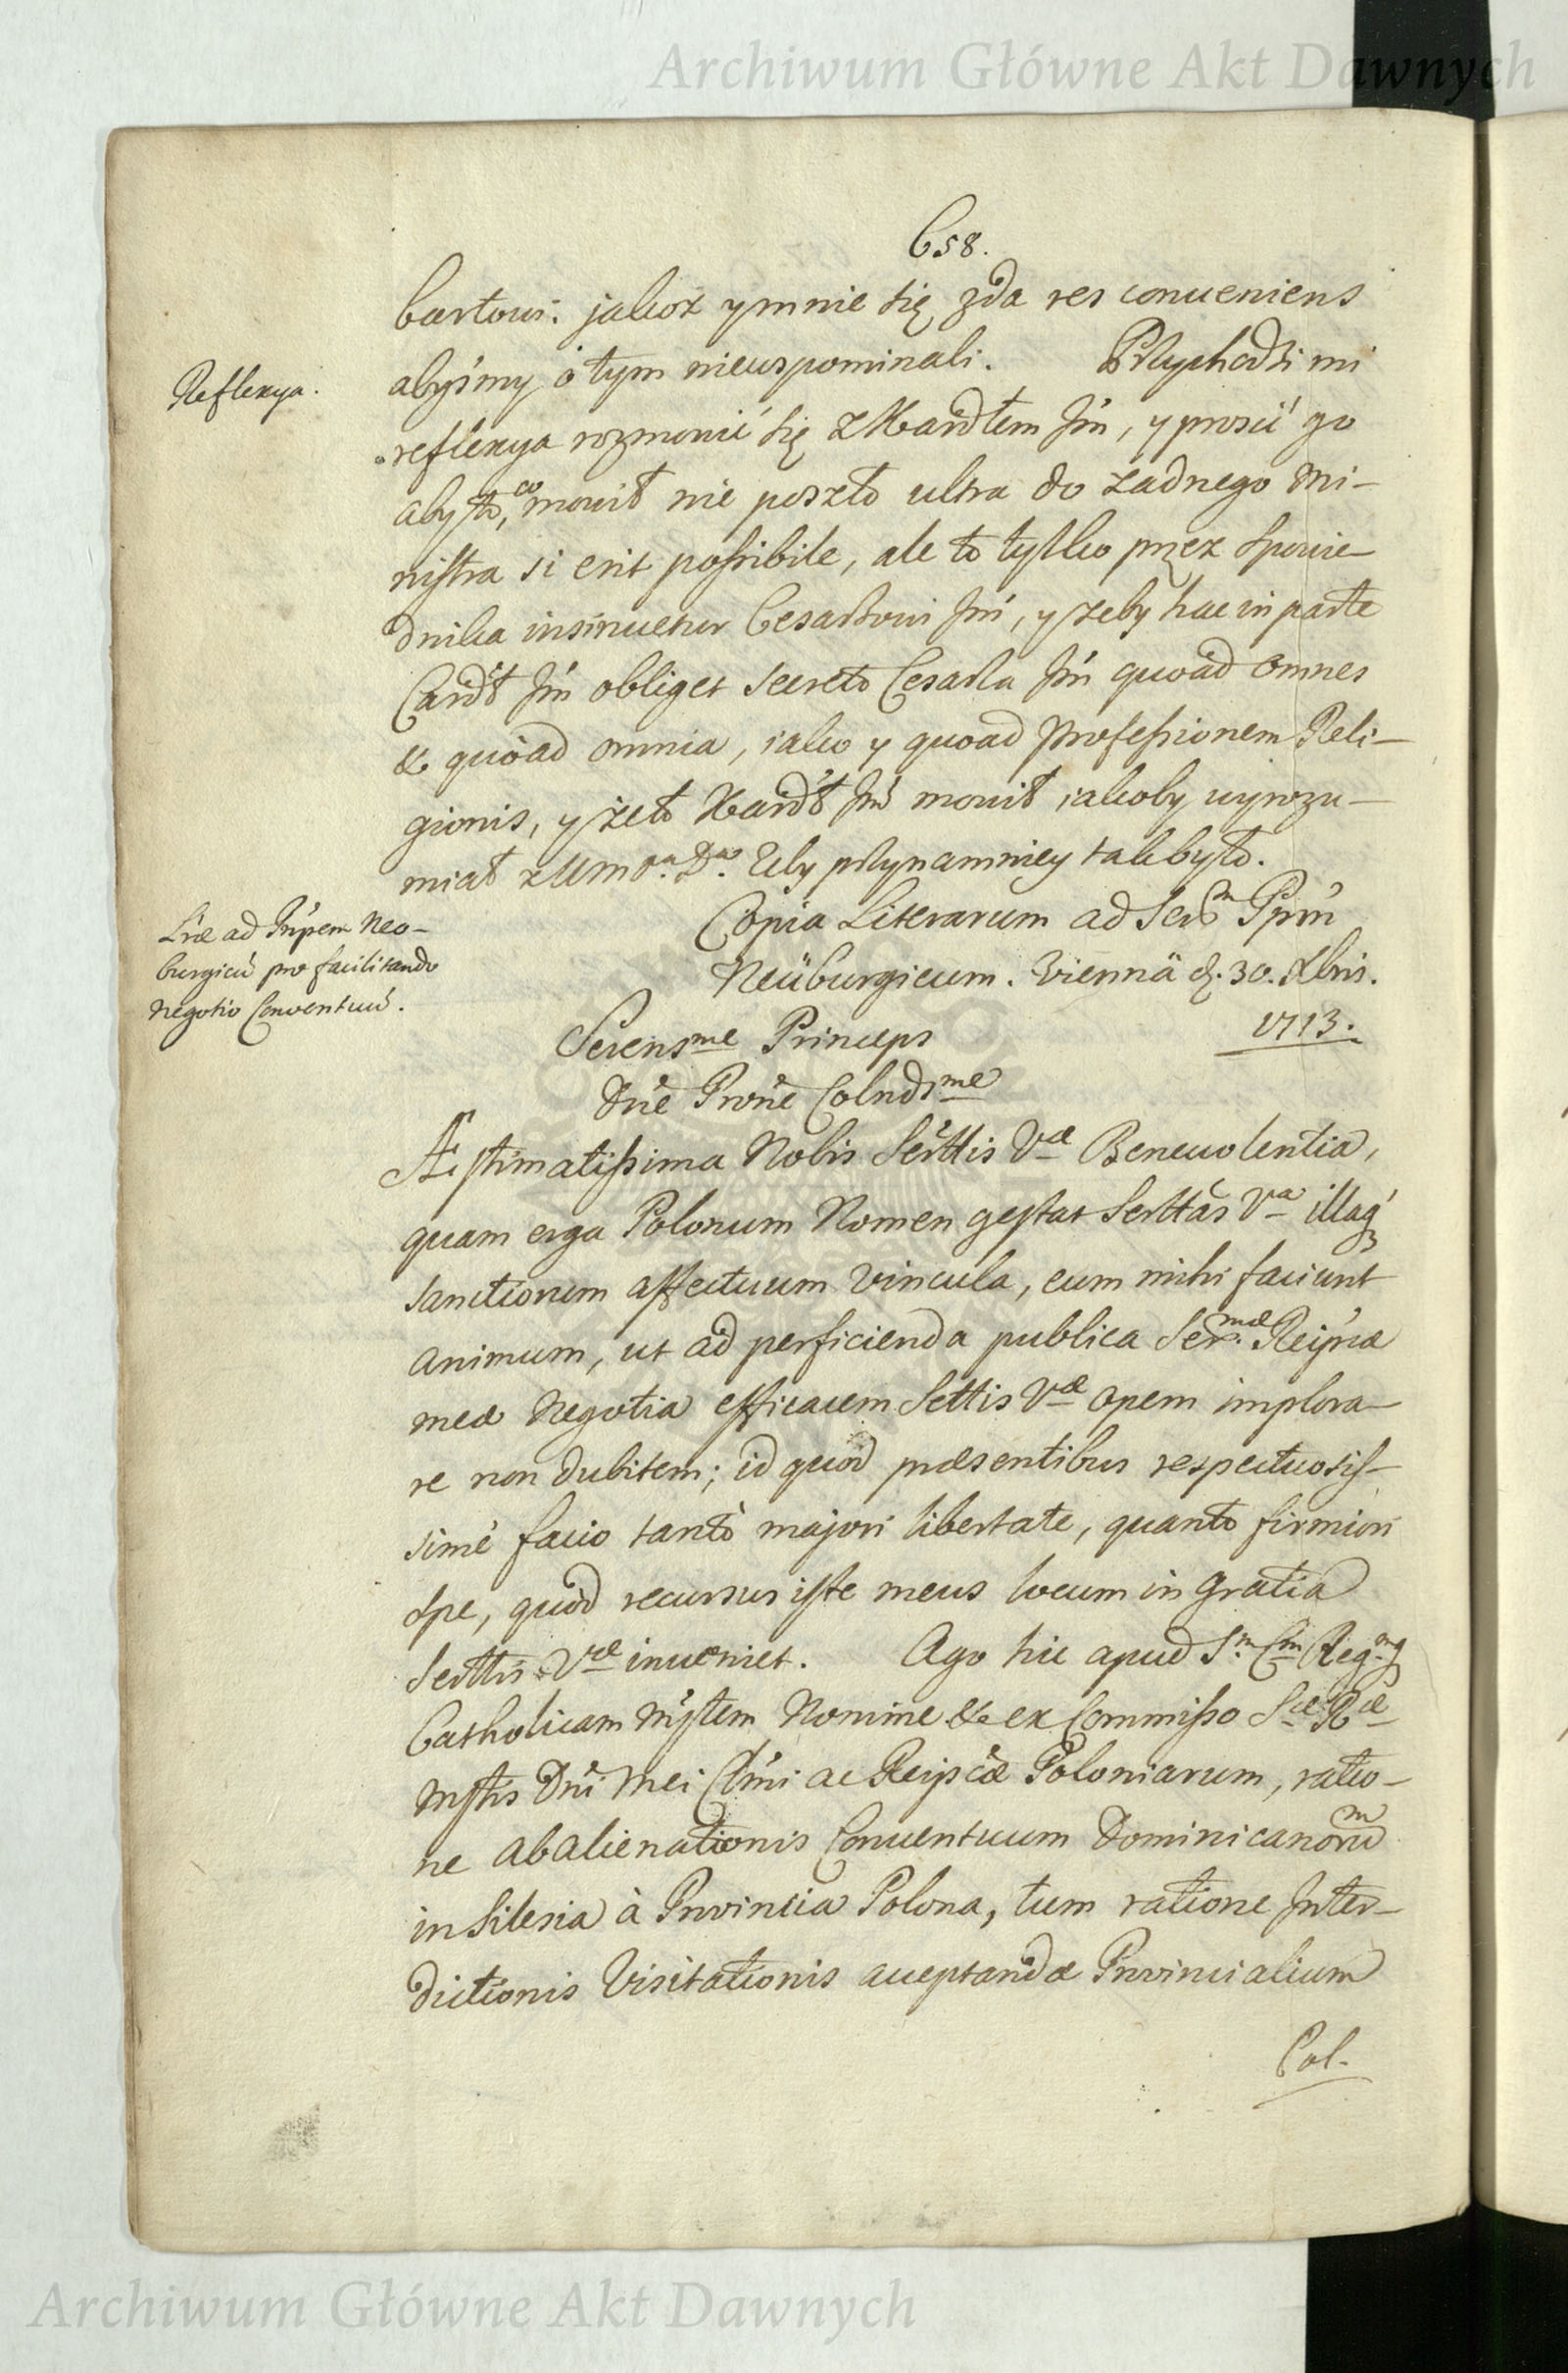 Archiwum Główne Akt Dawnych
658.
bertowi. jakoż y mnie się zda res conueniens
abyśmy o tym niewspominali. Przychodzi mi
Reflexya.
reflexya rozmowić się z Kardłem Jm̃, y prosić go
aby to, co mowił nie poszło ultra do żadnego Mi-
nistra si erit possibile, ale to tylko przez Spowie-
dnika insinuetur Cesarzowi Jm̃, y żeby hac in parte
Cardł Jm̃ obliget secreto Cesarza Jm̃ quoad omnes
& quoad omnia, iako y quoad Professionem Reli-
gionis, y że to Kardł Jm̃ mowił iakoby wyrozu-
miał z Um żeby przynamniey tak było.
Lr̃æ ad Pr̃ipem Neo-
burgicũ pro facilitando
negotio Conventuũ.
Copia Literarum ad Serm Pprm̃
Neüburgicum. Viennä d. 30. Xbris.
1713.
Serensme Princeps
Dñe Prone Colndsme
Æstimatissima Nobis Serttis Væ Beneuolentia,
quam erga Polonum Nomen gestat Serttas Va illaq́
sanctiorum affectuum vincula, eum mihi faciunt
animum, ut ad perficienda publica Ser.mæ Reipcæ
meæ Negotia efficacem Settis Væ opem implora-
re non dubitem; id quod præsentibus respectuosis-
simè facio tantò majori libertate, quanto firmiori
spe, quòd recursus iste meus locum in gratia
Serttis Væ inueniet. Ago hic apud S.m Cm Reg.mq
Catholicam Mstem Nomine & ex Commisso Sæ Ræ
Mstis Dñi Mei Clm̃i ac Reipcæ Poloniarum, ratio-
ne abalienationis Conuentuum Dominicanorum
in Silesia à Prouincia Polona, tum ratione Inter-
dictionis Visitationis acceptandæ Prouincialium
Pol.
Archiwum Główne Akt Dawnych